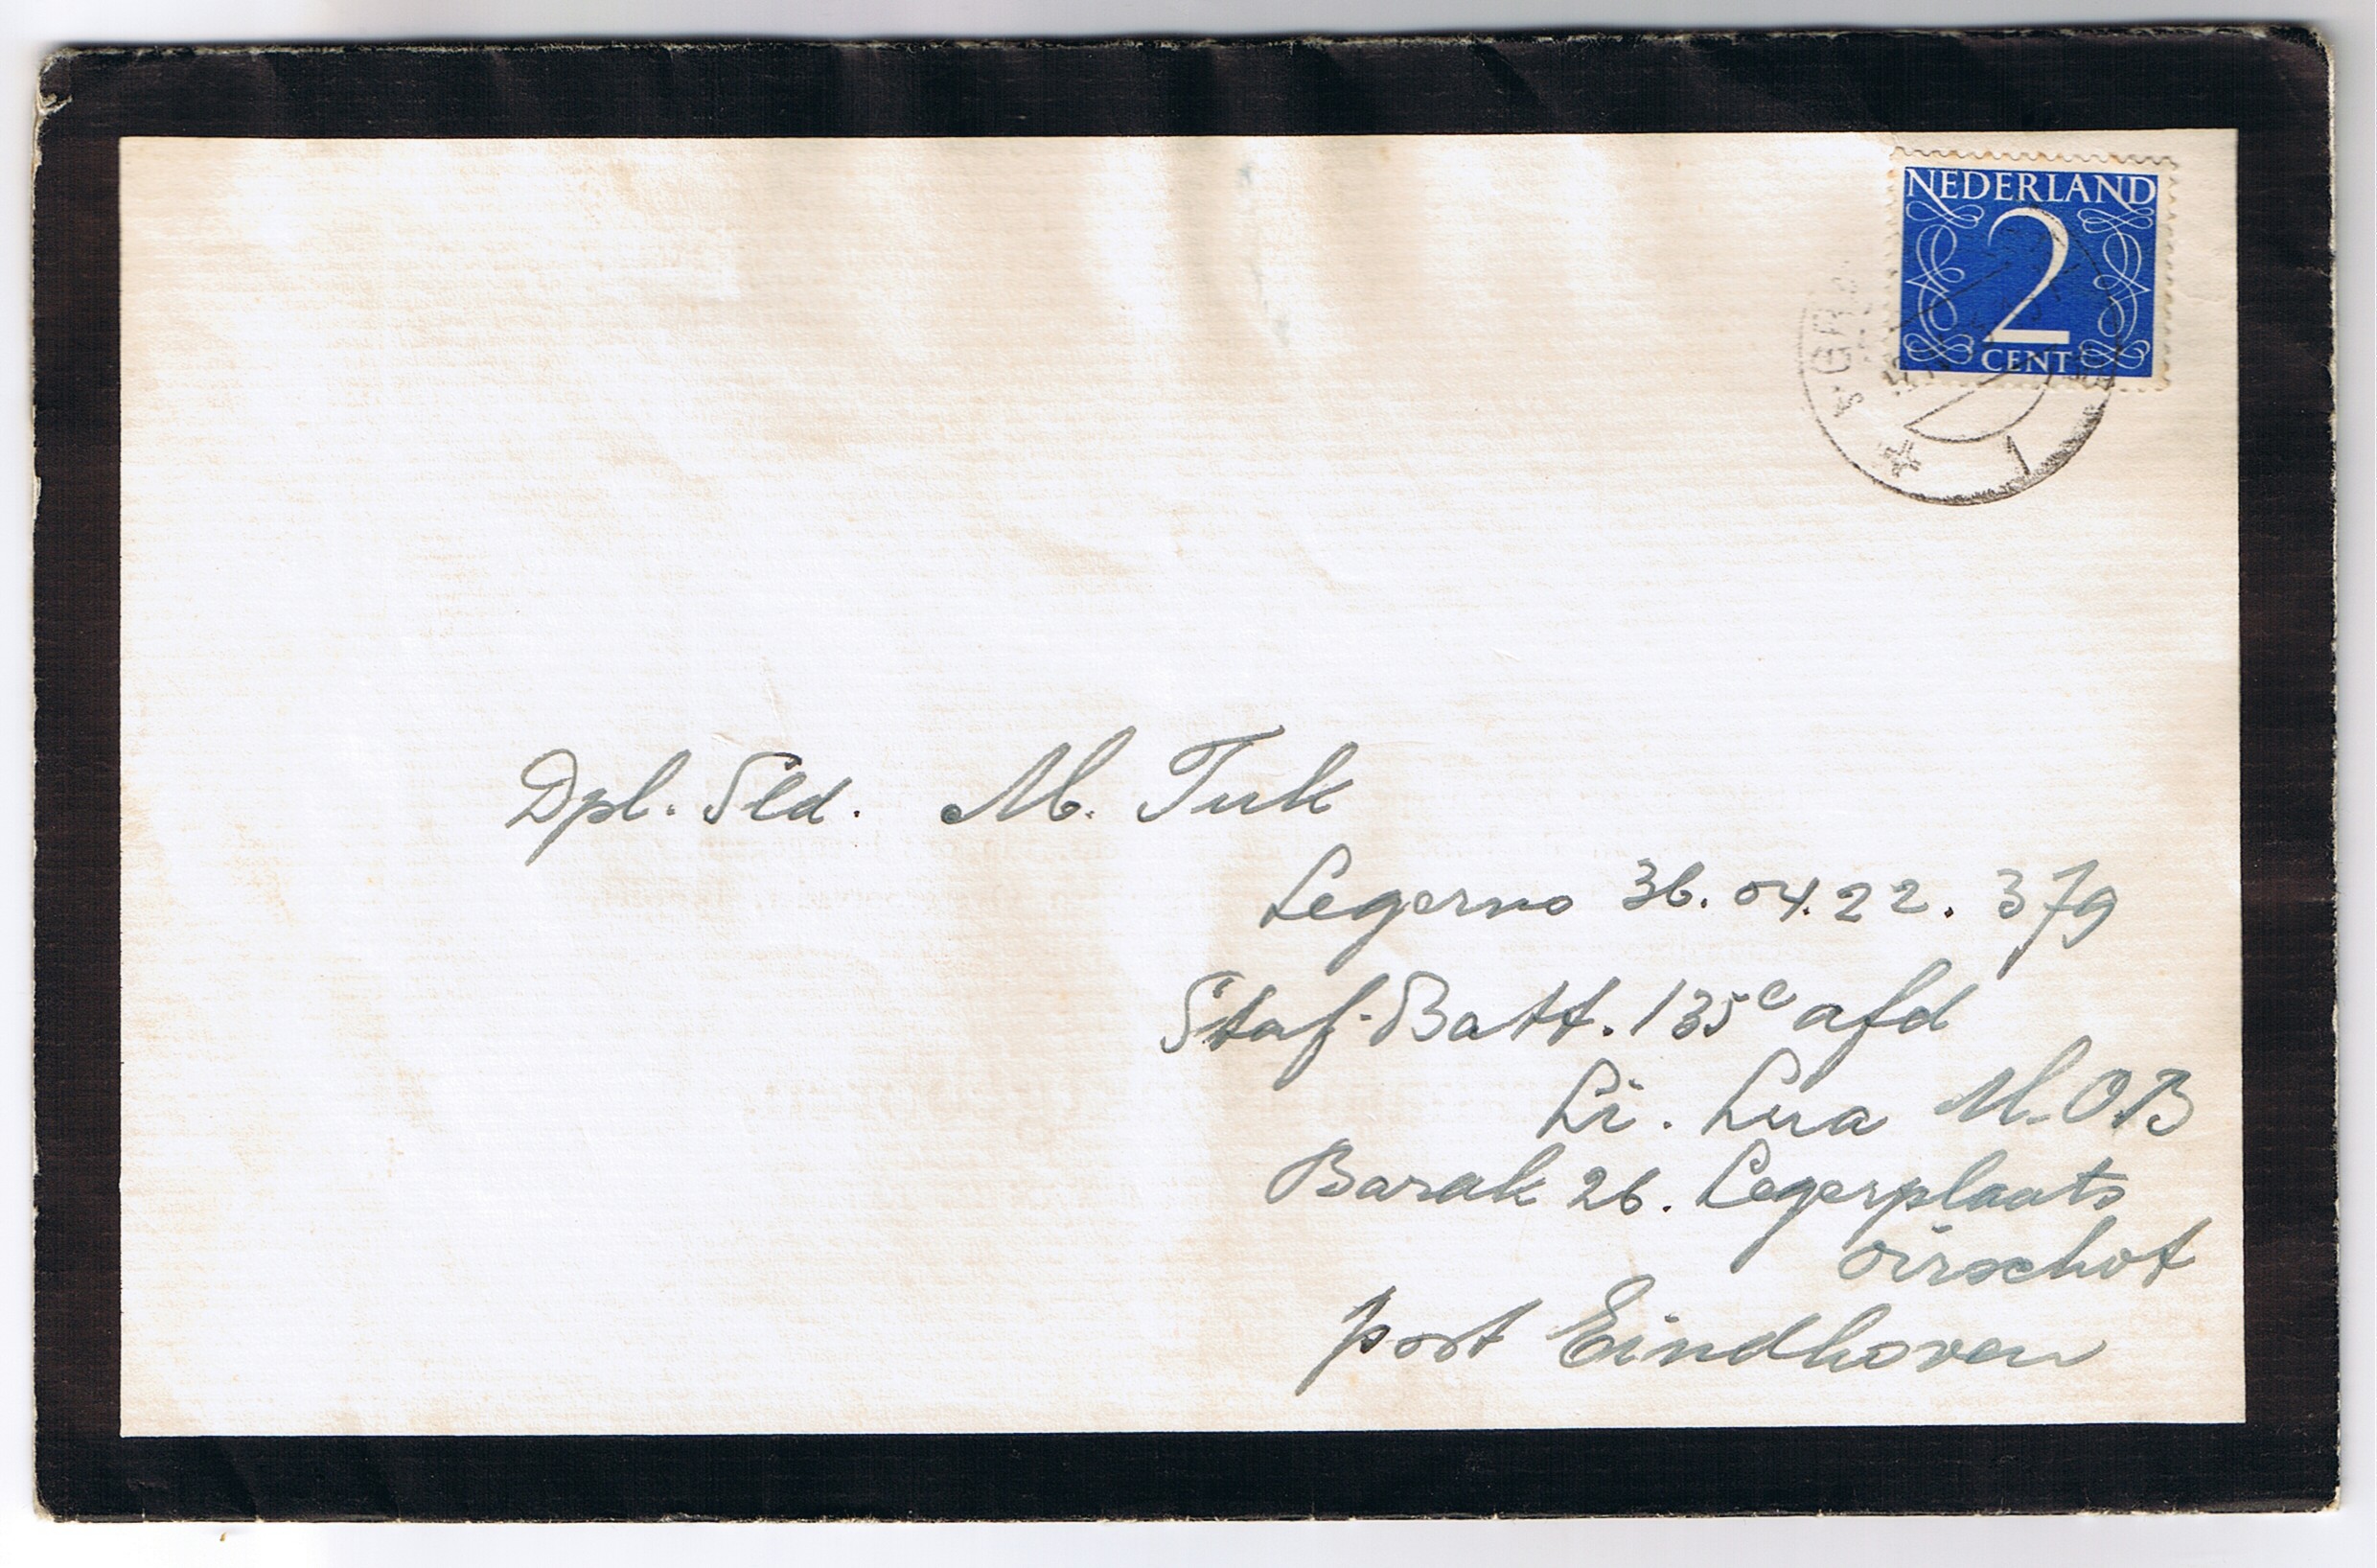 NEDERLAND
2
CENT
Dpl. Sld. M. Tuk
Legerno 36.04.22.379
Staf-Batt. 135e afd
Li. Lua M.O.B
Barak 26. Legerplaats
oirschot
post Eindhoven